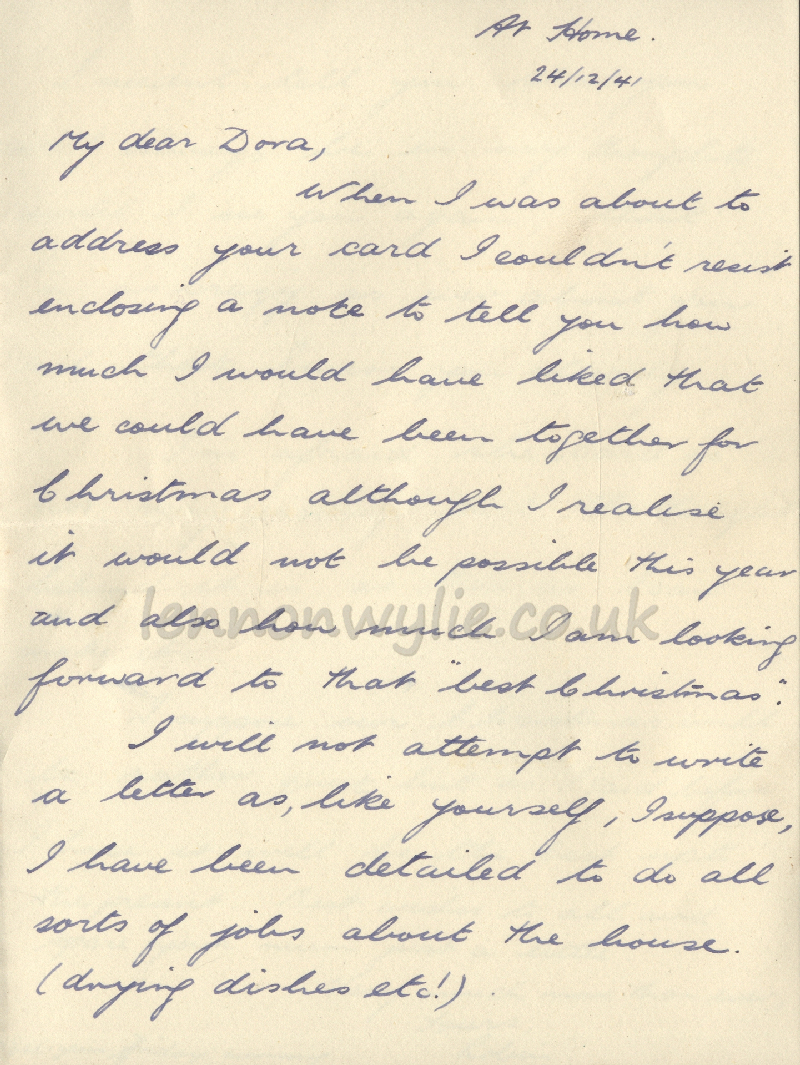 At Home.
24/12/41
My dear Dora,
When I was about to
address your card I couldn't resist
enclosing a note to tell you how
much I would have liked that
we could have been together for
Christmas although I realise
it would not be possible this year
and also how much I am looking
lennonwylie.co.uk
forward to that "best Christmas".
I will not attempt to write
a letter as, like yourself, I suppose,
I have been detailed to do all
sorts of jobs about the house.
(drying dishes etc!)